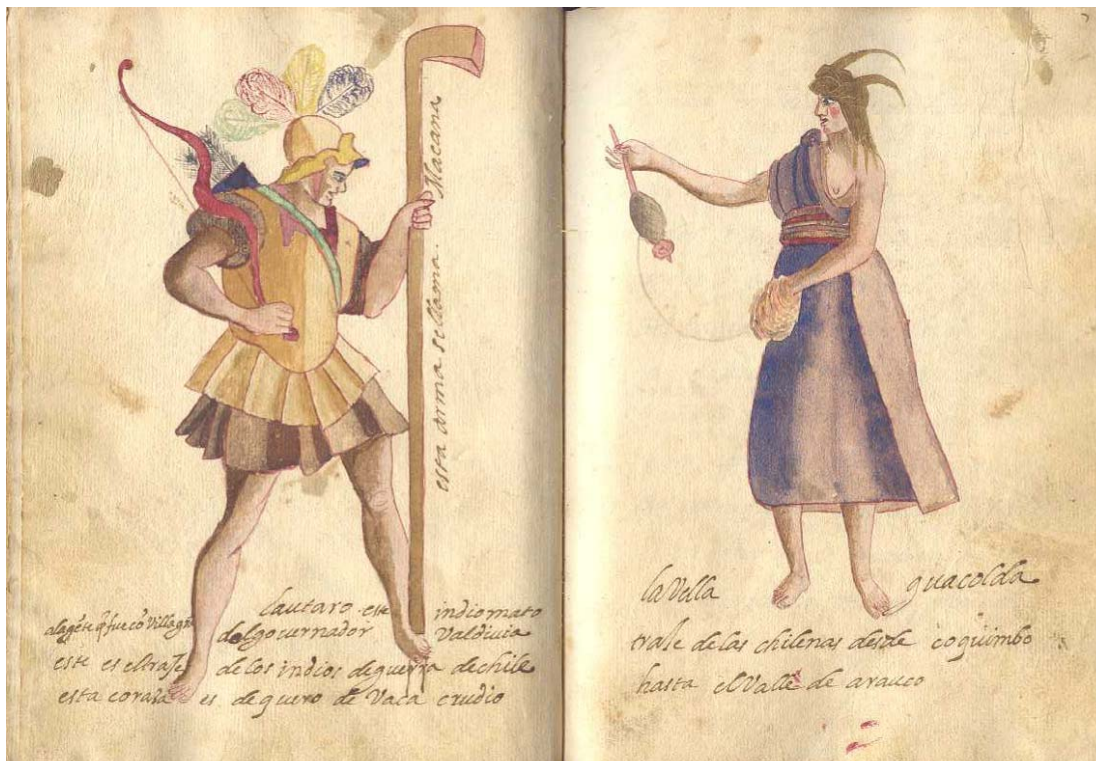 esta arma sellama. Macana
lautaro este indio mato
alagēte q̄ fue cō Villagrā delgouernador Valdiuia
este es eltraJe de los indios deguerra dechile
esta coraza es de quero de Vaca crudio
la Vella guacolda
traJe de las chilenas desde coquimbo
hasta el Valle de arauco